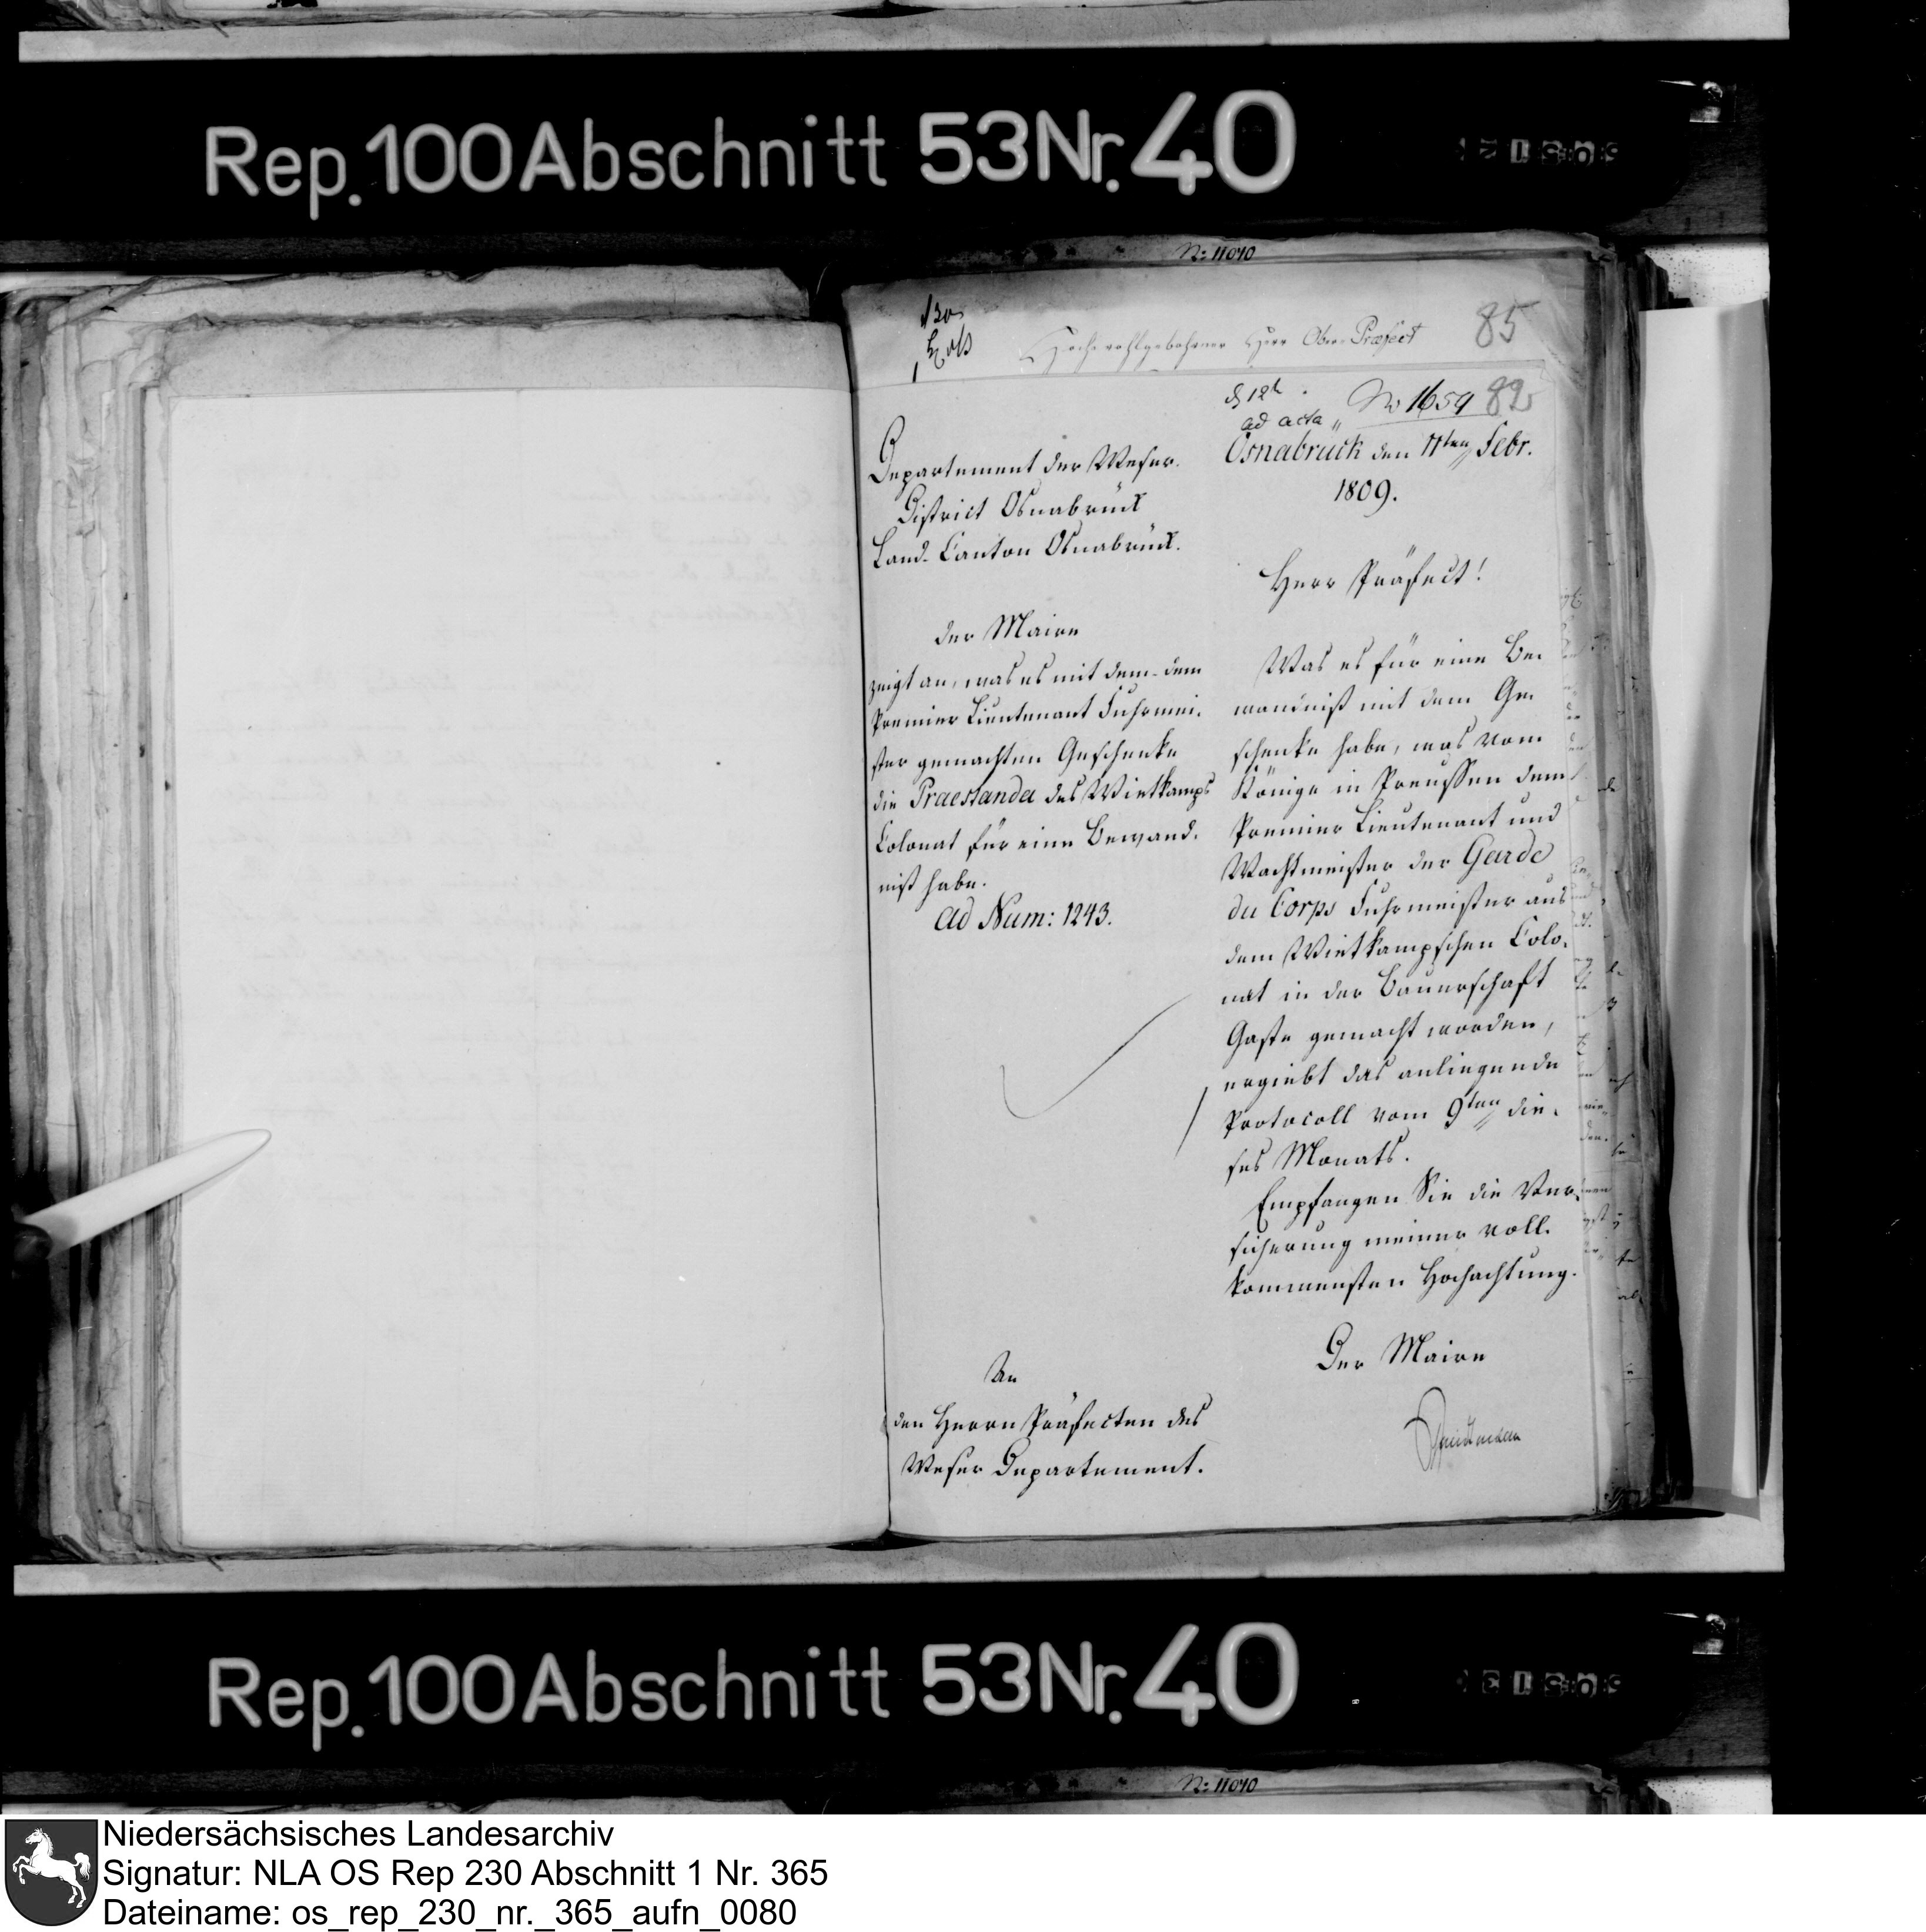 Rep. 100 Abschnitt 53 Nr. 40
N: 11040
Hochwohlgebohrner Herr Ober Præfect
85
No 1659 82
ad acta
Osnabrück den 11ten Febr.
1809.
Departement der Weser.
District Osnabrück
Land-Canton Osnabrück.
der Maire
zeigt an, was es mit dem-dem
Premier Lieutenant Fuhrmei-
ster gemachten Geschenke
die Praestanda des Wietkamps
Colonat für eine Bewand-
niß habe.
ad Num: 1243.
An
den Herrn Präfecten des
Weser Departement.
Herr Präfect!
Was es für eine Be-
wandniß mit dem Ge-
schenke habe, was vom
Könige in Preussen dem
Premier Lieutenant und
Wachtmeister der Garde
du Corps Fuhrmeister aus
dem Wietkampschen Colo-
nat in der Bauerschaft
Gaste gemacht worden,
ergiebt das anliegende
Protocoll vom 9ten die-
ses Monats.
Empfangen Sie die Ver-
sicherung meiner voll-
kommensten Hochachtung.
Der Maire
Rep. 100 Abschnitt 53 Nr. 40
N: 11040
Niedersächsisches Landesarchiv
Signatur: NLA OS Rep 230 Abschnitt 1 Nr. 365
Dateiname: os_rep_230_nr._365_aufn_0080